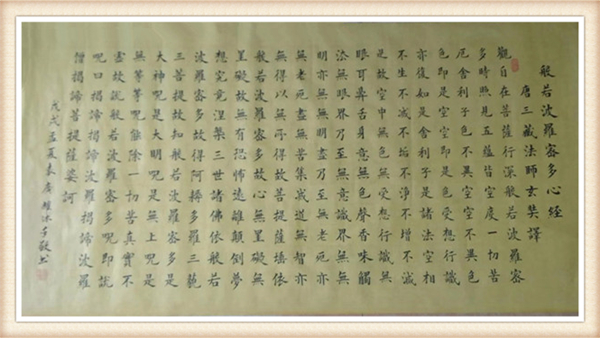 般若波羅蜜多心經
唐三藏法師玄奘譯
觀自在菩薩行深般若波羅蜜
多時照見五蘊皆空度一切苦
厄舍利子色不異空空不異色
色即是空空即是色受想行識
亦復如是舍利子是諸法空相
不生不滅不垢不淨不增不減
是故空中無色無受想行識無
眼耳鼻舌身意無色聲香味觸
法無眼界乃至無意識界無無
明亦無無明盡乃至無老死亦
無老死盡無苦集滅道無智亦
無得以無所得故菩提薩埵依
般若波羅蜜多故心無罣礙無
罣礙故無有恐怖遠離顛倒夢
想究竟涅槃三世諸佛依般若
波羅蜜多故得阿耨多羅三藐
三菩提故知般若波羅蜜多是
大神呪是大明呪是無上呪是
無等等呪能除一切苦真實不
虛故說般若波羅蜜多呪即說
呪曰揭諦揭諦波羅揭諦波羅
僧揭諦菩提薩婆訶
戊戌孟夏袁沐手敬书